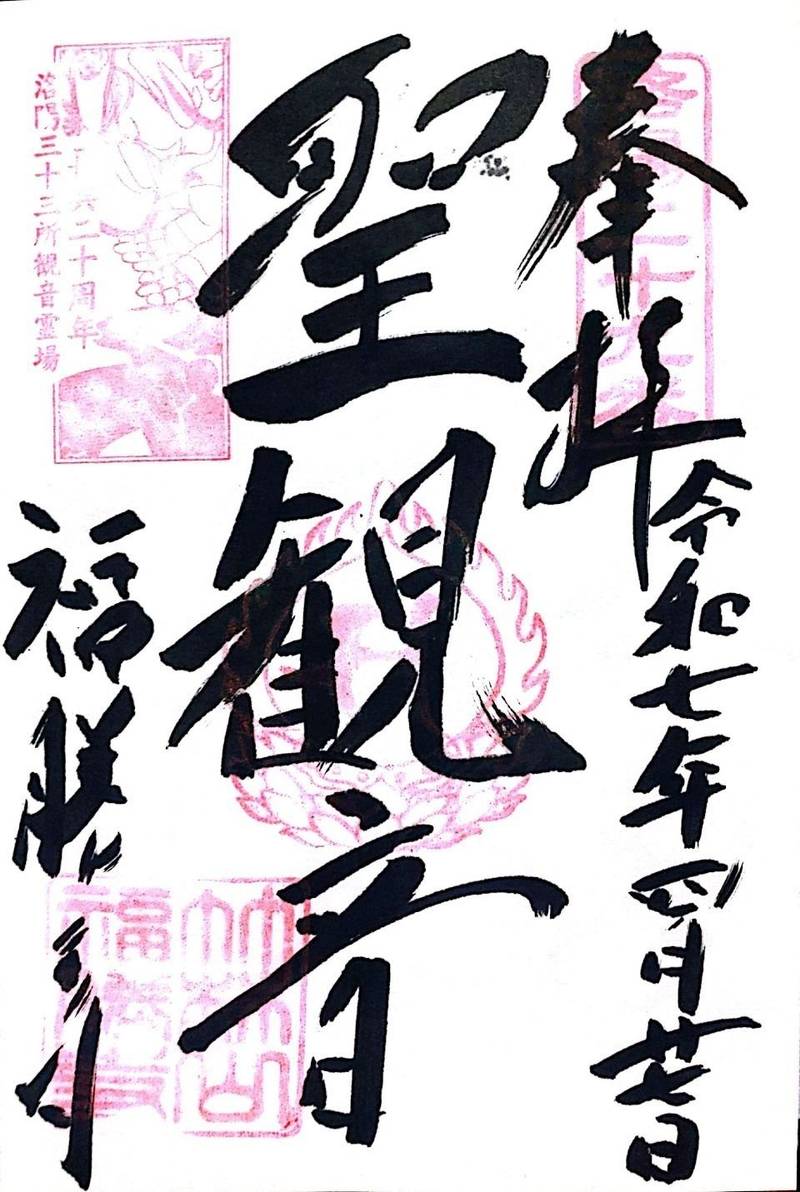 奉拝
令和七年四月廿七日
聖観音
福勝寺
二十九番
洛陽三十三所観音霊場
二十周年
福勝寺